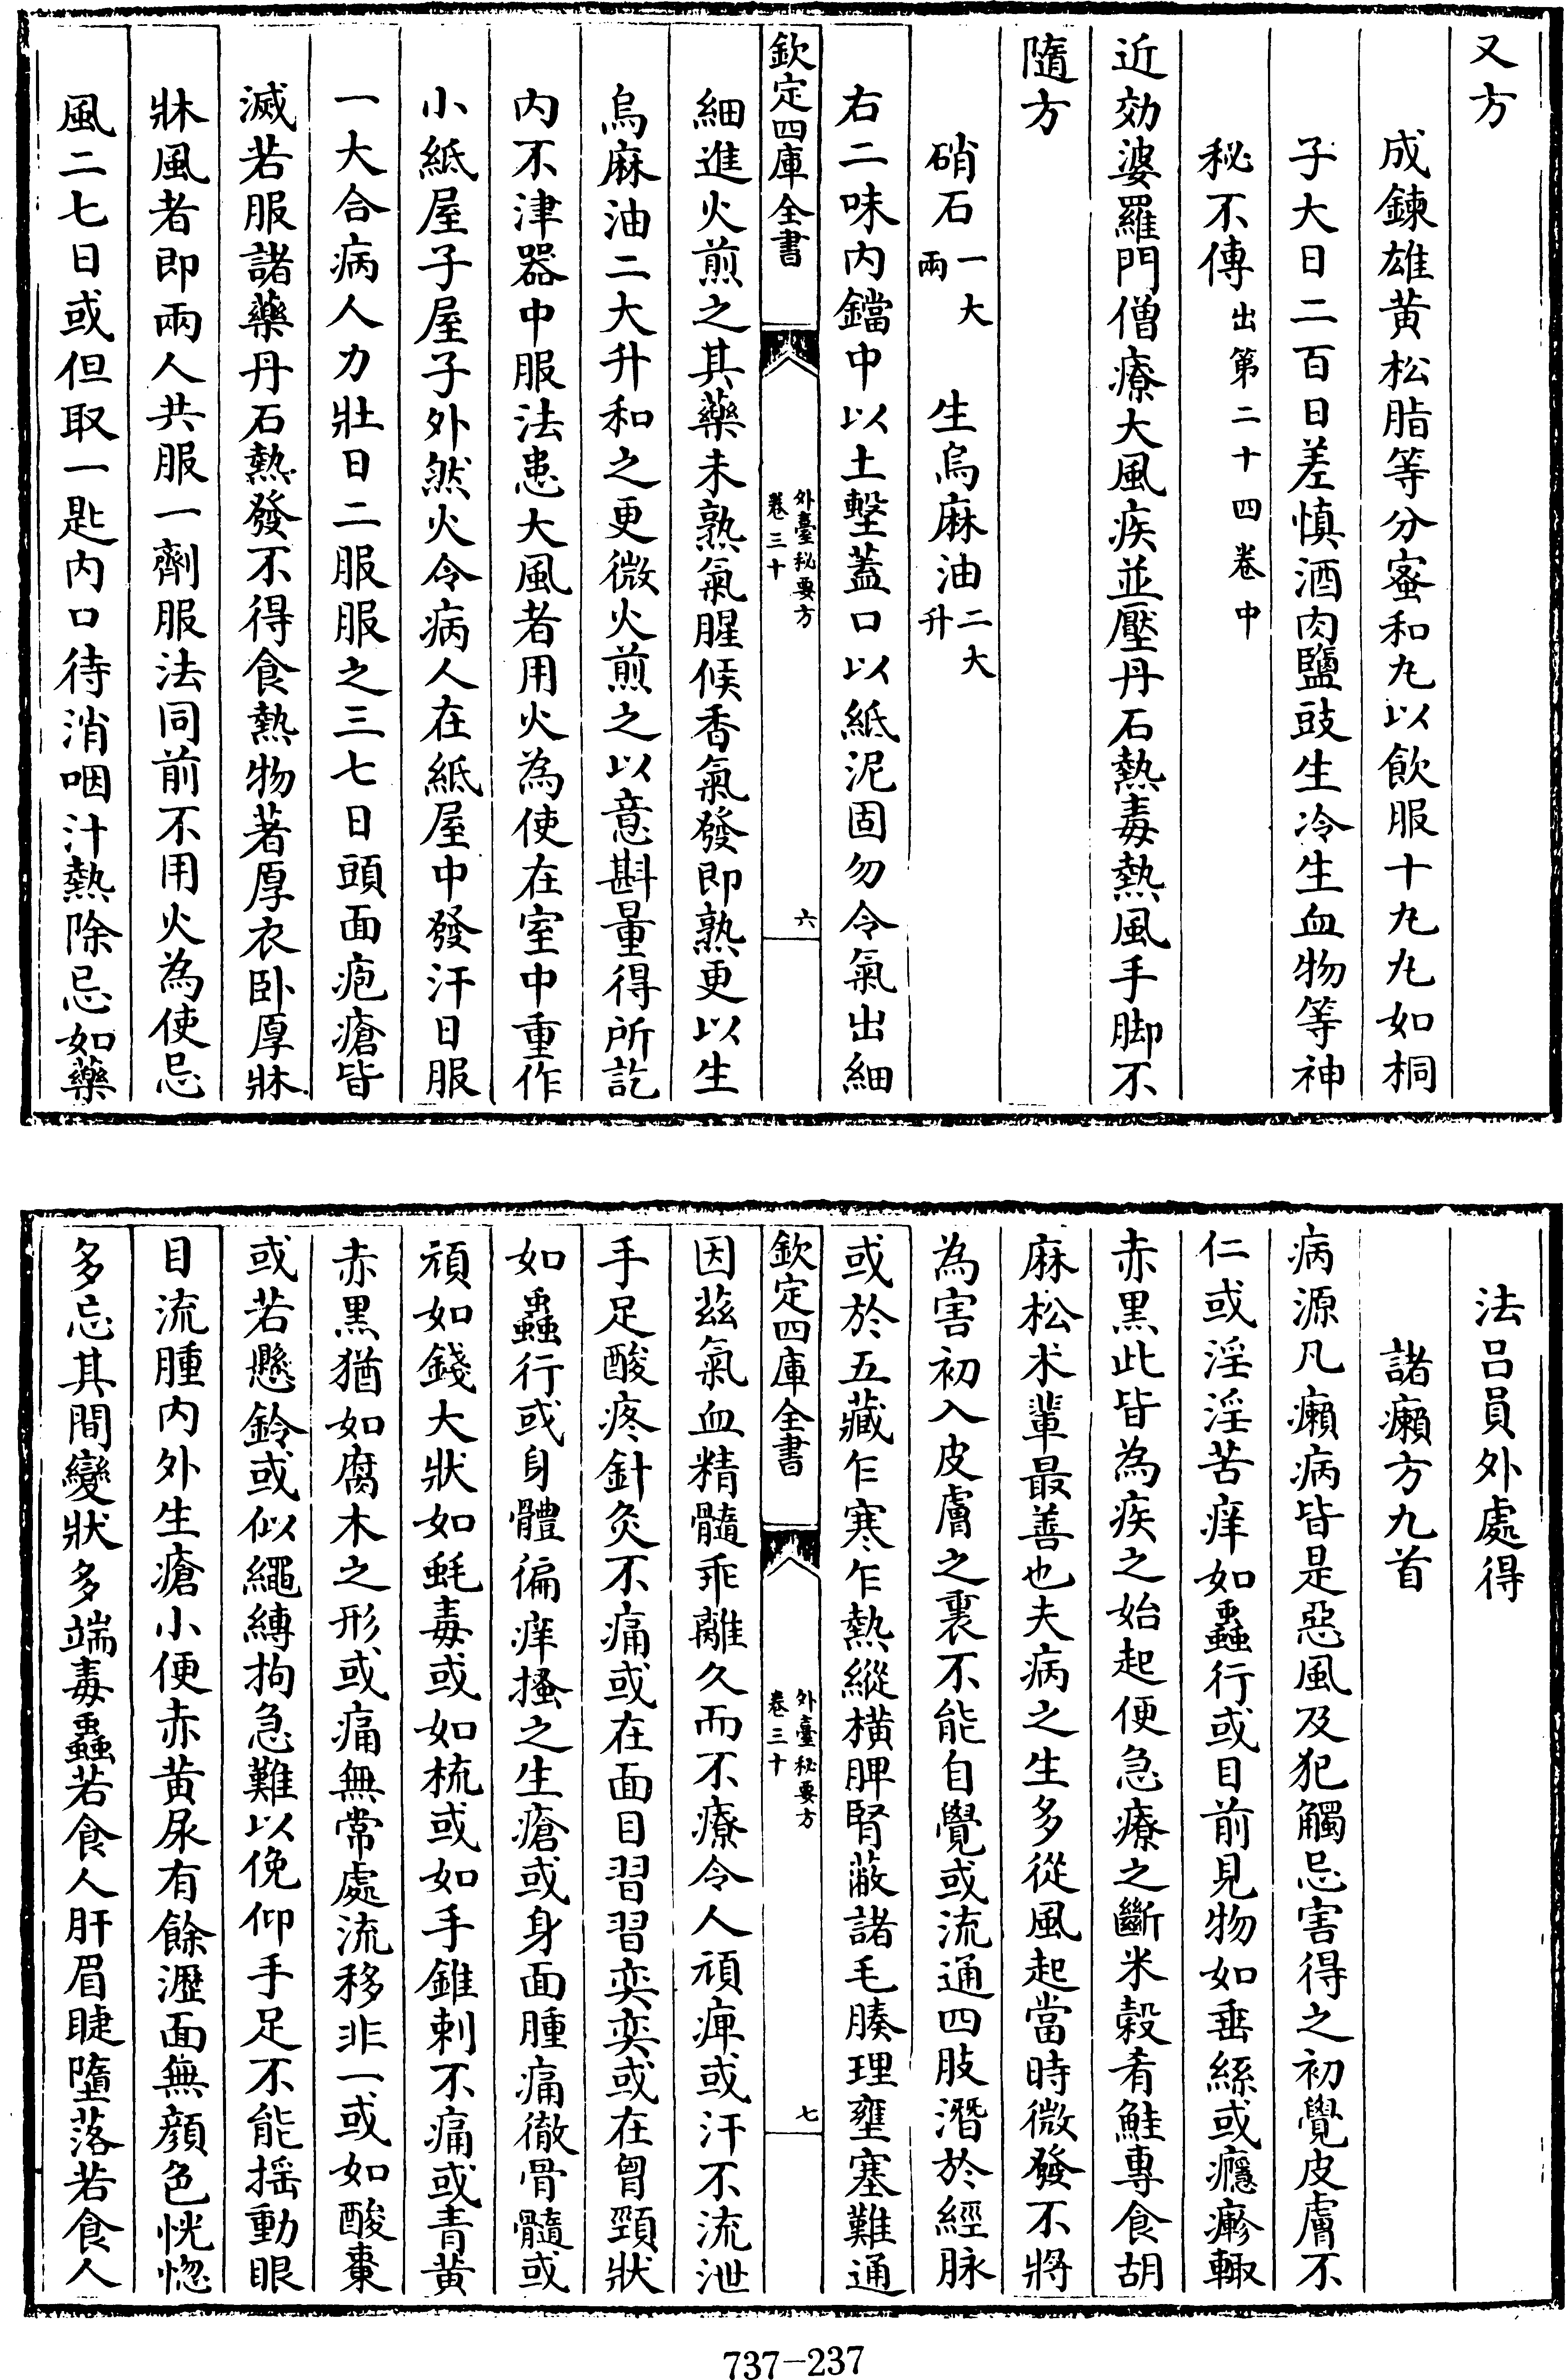 又方
成鍊雄黄松脂等分蜜和丸以飲服十丸丸如桐
子大日二百日差慎酒肉鹽豉生冷生血物等神
秘不傳出第二十四卷中
近効婆羅門僧療大風疾並壓丹石熱毒熱風手脚不
隨方
硝石一大兩　生烏麻油二大升
右二味内鐺中以土墼蓋口以紙泥固勿令氣出細
欽定四庫全書
外臺秘要方
卷三十
六
細進火煎之其藥未熟氣腥候香氣發即熟更以生
烏麻油二大升和之更微火煎之以意斟量得所訖
内不津器中服法患大風者用火為使在室中重作
小紙屋子屋子外然火令病人在紙屋中發汗日服
一大合病人力壯日二服服之三七日頭面疱瘡皆
滅若服諸藥丹石熱發不得食熱物著厚衣卧厚牀
牀風者即兩人共服一劑服法同前不用火為使忌
風二七日或但取一匙内口待消咽汁熱除忌如藥
法吕員外處得
諸癩方九首
病源凡癩病皆是惡風及犯觸忌害得之初覺皮膚不
仁或淫淫苦痒如蟲行或目前見物如垂絲或癮㾦輙
赤黑此皆為疾之始起便急療之斷米榖肴鮭專食胡
麻松术輩最善也夫病之生多從風起當時微發不將
為害初入皮膚之裏不能自覺或流通四肢潛於經脉
或於五藏乍寒乍熱縱横脾腎蔽諸毛腠理壅塞難通
欽定四庫全書
外臺秘要方
卷三十
七
因茲氣血精髓乖離久而不療令人頑痺或汗不流泄
手足酸疼針灸不痛或在面目習習奕奕或在胷頸狀
如蟲行或身體徧痒搔之生瘡或身面腫痛徹骨髓或
頑如錢大狀如蚝毒或如梳或如手錐刺不痛或青黄
赤黑猶如腐木之形或痛無常處流移非一或如酸棗
或若懸鈴或似繩縛拘急難以俛仰手足不能揺動眼
目流腫内外生瘡小便赤黄尿有餘瀝面無顔色恍惚
多忘其間變狀多端毒蟲若食人肝眉睫墮落若食人
737-237